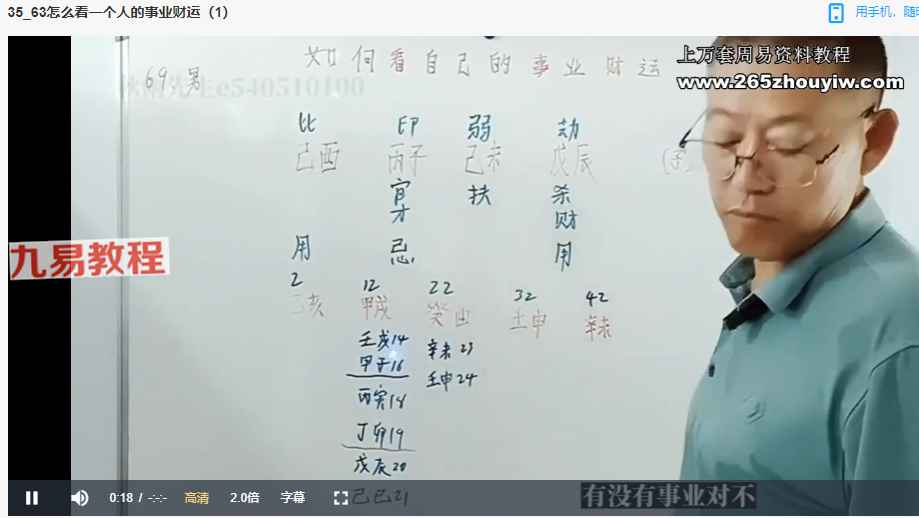 35_63怎么看一个人的事业财运（1）
用手机，随时
上万套周易资料教程
www.265zhouyiw.com
如何看自己的事业财运
69男
e540510100
比 印 弱 劫
己酉 丙子 己未 戊辰
扶 杀
财
用 忌 用
2 12 22 32 42
乙亥 甲戌 癸酉 壬申 辛未
壬戌14 辛未23
甲子16 壬申24
丙寅18
丁卯19
戊辰20
己巳21
九易教程
有没有事业对不
0:18 / -:-:- 高清 2.0倍 字幕